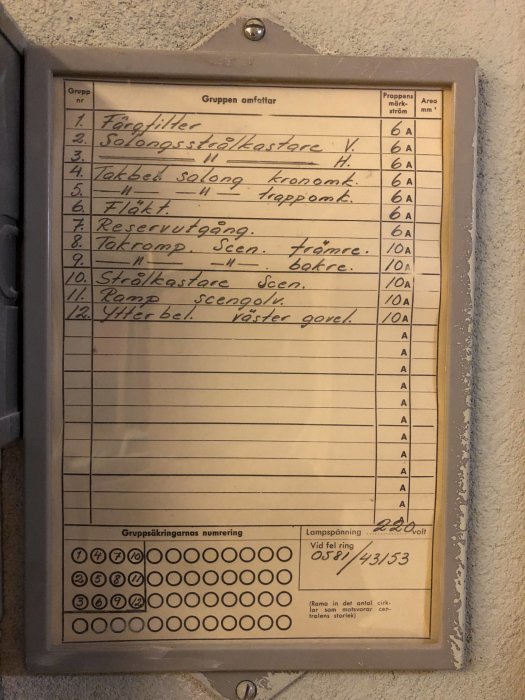 Grupp nr Gruppen omfattar Proppens märk- ström Area mm²
1. Färgfilter 6 A
2. Salongsstrålkastare V. 6 A
3. —— " —— H. 6 A
4. Takbel. salong kronomk. 6 A
5. — " — — " — trappomk. 6 A
6. Fläkt. 6 A
7. Reservutgång. 6 A
8. Takramp. Scen. främre. 10 A
9. — " — — " —. bakre. 10 A
10. Strålkastare Scen. 10 A
11. Ramp scengolv. 10 A
12. Ytterbel. väster gavel. 10 A
A
A
A
A
A
A
A
A
A
A
A
Gruppsäkringarnas numrering
1 4 7 10
2 5 8 11
3 6 9 12
Lampspänning 220 volt
Vid fel ring
0581/43153
(Rama in det antal cirk-
lar som motsvarar cen-
tralens storlek)